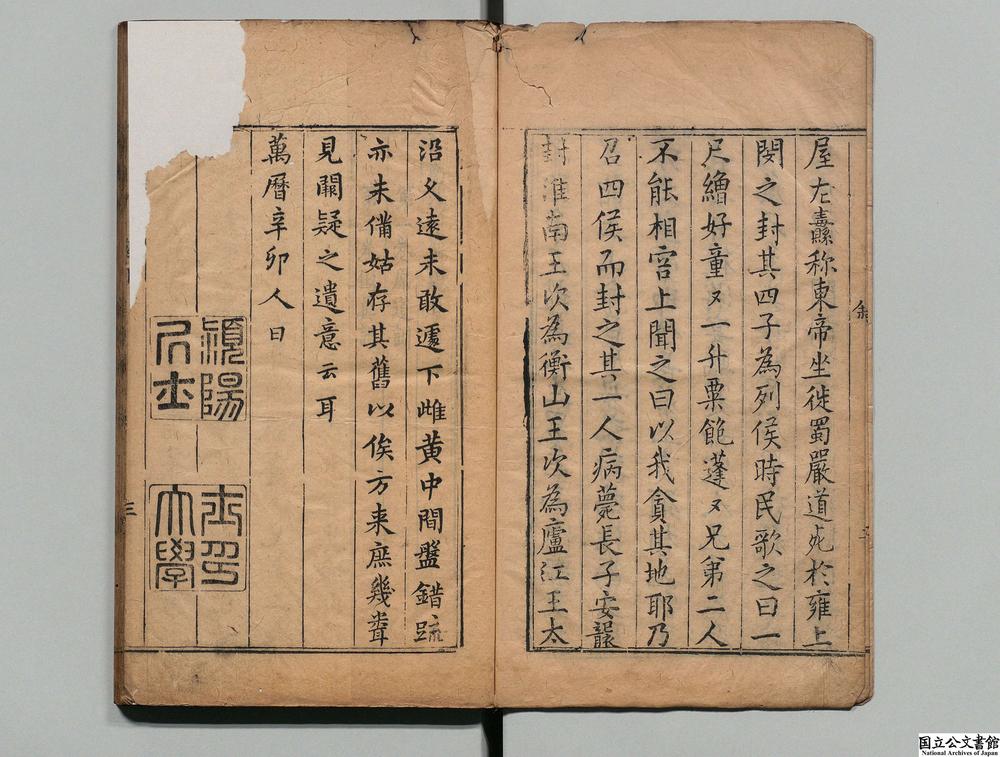 屋左纛称東帝坐徙蜀嚴道死於雍上
閔之封其四子為列侯時民歌之曰一
尺繒好童々一升粟飽蓬々兄弟二人
不能相容上聞之曰以我貪其地耶乃
召四侯而封之其一人病薨長子安襲
封淮南王次為衡山王次為廬江王太
沿久遠未敢遽下雌黄中間盤錯疏
亦未備姑存其舊以俟方来庶幾
見闕疑之遺意云耳
萬曆辛卯人日
三
潁陽
大學
国立公文書館
National Archives of Japan